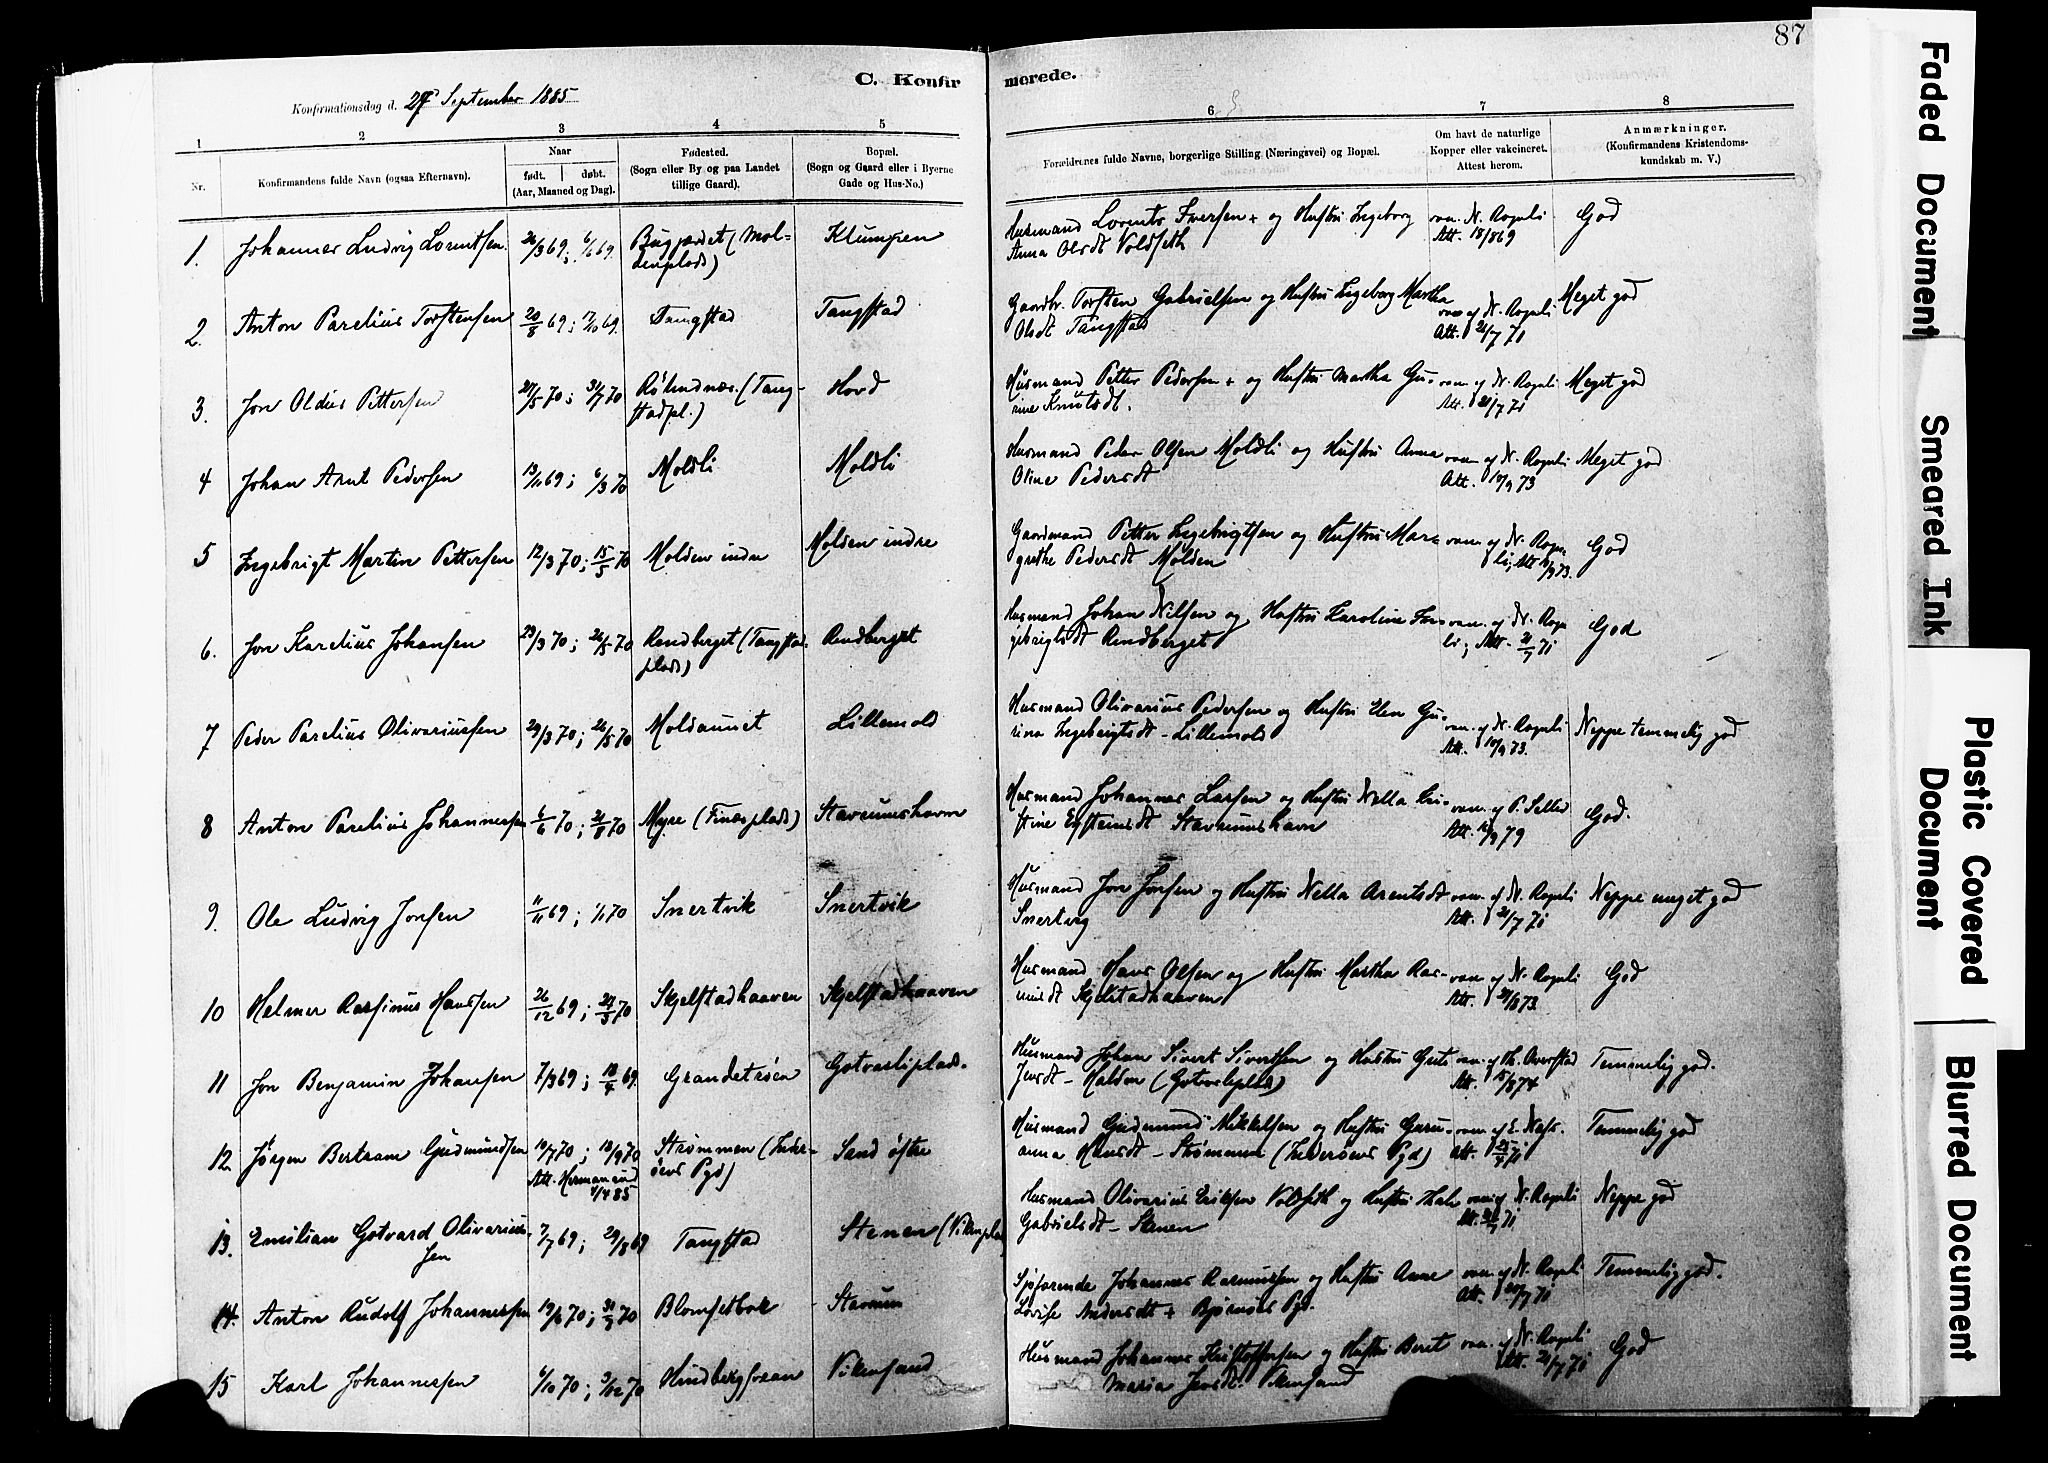 87
C. Konfir
merede.
Konfirmationsdag d. 27 September 1885
1 2 3 4 5 6 7 8
Nr.
Konfirmandens fulde Navn (ogsaa Efternavn).
Naar
født. døbt.
(Aar, Maaned og Dag).
Fødested.
(Sogn eller By og paa Landet
tillige Gaard).
Bopæl.
(Sogn og Gaard eller i Byerne
Gade og Hus-No.)
Forældrenes fulde Navne, borgerlige Stilling (Næringsvei) og Bopæl.
Om havt de naturlige
Kopper eller vakcineret.
Attest herom.
Anmærkninger.
(Konfirmandens Kristendoms-
kundskab m. V.)
1. Johannes Ludvig Lorentsen 26/3 69; 6/6 69. Bugjerdet (Mol- Klumpen Husmand Lorents Iversen + og Hustru Ingeborg vac. N. Rogali God
denplads) Anna Olsdt Voldseth Att. 18/8 69
2. Anton Parelius Torstensen 20/8 69; 17/10 69. Tangstad Tangstad Gaardbr. Torsten Gabrielsen og Hustru Ingeborg Martha vac. af N. Rogali Meget god
Olsdt Tangstad Att. 21/7 71
3. Jon Oldius Pettersen 27/5 70; 31/7 70 (Tang- Hord Husmand Petter Pedersen + og Hustru Martha Gu- vac. af N. Rogali Meget god
stadpl.) rine Knutsdt. Att. 21/7 71
4 Johan Arnt Pedersen 13/11 69; 6/3 70 Moldli Moldli Husmand Peder Olsen Moldli og Hustru Anna vac. af N. Rogali Meget god
Oline Pedersdt Att. 10/9 73
5 Ingebrigt Martin Pettersen 12/3 70; 15/5 70 Molden indre Molden indre Gaardmand Petter Ingebrigtsen og Hustru Mar- vac. af N. Roga- God
grethe Pedersdt Molden li; Att 10/9 73.
6. Jon Karelius Johansen 23/3 70; 26/5 70 Rendberget (Tangstad- Rendberget Husmand Johan Nilsen og Hustru Karoline In- vac. af N. Roga God
plads) gebrigtsdt Rendberget li; Att. 21/7 71
7 Peder Parelius Olivariussen 29/3 70; 26/5 70 Moldaunet Lillemold Husmand Olivarius Pedersen og Hustru Elen Gu- vac. af N. Rogali Neppe temmelig god
rina Ingebrigtsdt – Lillemold Att. 10/9 73.
8 Anton Parelius Johannessen 6/6 70; 21/8 70 Myre (Finæsplads) Stavrumshavn Husmand Johannes Larsen og Hustru Nella Kri- vac. af P. Selled God.
stine Eysteinsdt Stavrumshavn Att. 12/9 79
9. Ole Ludvig Jonsen 11/11 69; 1/1 70 Snertvik Snertvik Husmand Jon Jonsen og Hustru Nella Arentsdt vac. af N. Rogali Neppe meget god
Snertvig Att. 21/7 71
10 Helmer Rasfinus Hanssen 26/12 69; 27/3 70 Skjelstadhaaven Skjelstadhaaven Husmand Hans Olsen og Hustru Martha Ras- vac. af N. Rogali God
musdt Skjelstadhaaven Att. 21/8 73.
11 Jon Benjamin Johansen 7/3 69; 18/4 69. Grandetrøen Gotvasliplads. Husmand Johan Sivert Sivertsen og Hustru Guri vac. af Th. Overstad Temmelig god.
Jensdt – Halden (Gotvasliplads) Att. 15/8 74
12. Jørgen Bertram Gudmundsen 10/7 70; 18/9 70 Strømmen (Inder- Sand østre Husmand Gudmund Mikkelsen og Hustru Guru- vac. af E. Næss. Temmelig god
Att. Hermanrud
4/4 85 øens Pgd) anna Hansdt – Strømmen (Inderøens Pgd) att. 25/4 71
13. Emilian Gotvard Olivarius- 7/7 69; 29/8 69 Tangstad Stenen (Vikenplads Husmand Olivarius Eriksen Voldseth og Hustru vac. af N. Rogali Neppe god
sen Gabrielsdt – Stenen Att. 21/7 71
14. Anton Rudolf Johannessen 19/6 70; 31/7 70 Blomsetbak Stavrum Sjøfarende Johannes Rasmussen og Hustru Anne vac. af N. Rogali Temmelig god.
Lovise Andersdt + Bjørnørs Pgd. Att. 20/7 71
15 Karl Johannessen 4/10 70; 3/12 70 Hindbergsvean Vikensand Husmand Johannes Kristoffersen og Hustru Beret vac. af N. Rogali God
Maria Jensdt. Vikensand Att. 21/7 71
Faded Document
Smeared Ink
Plastic Covered
Document
Blurred Document